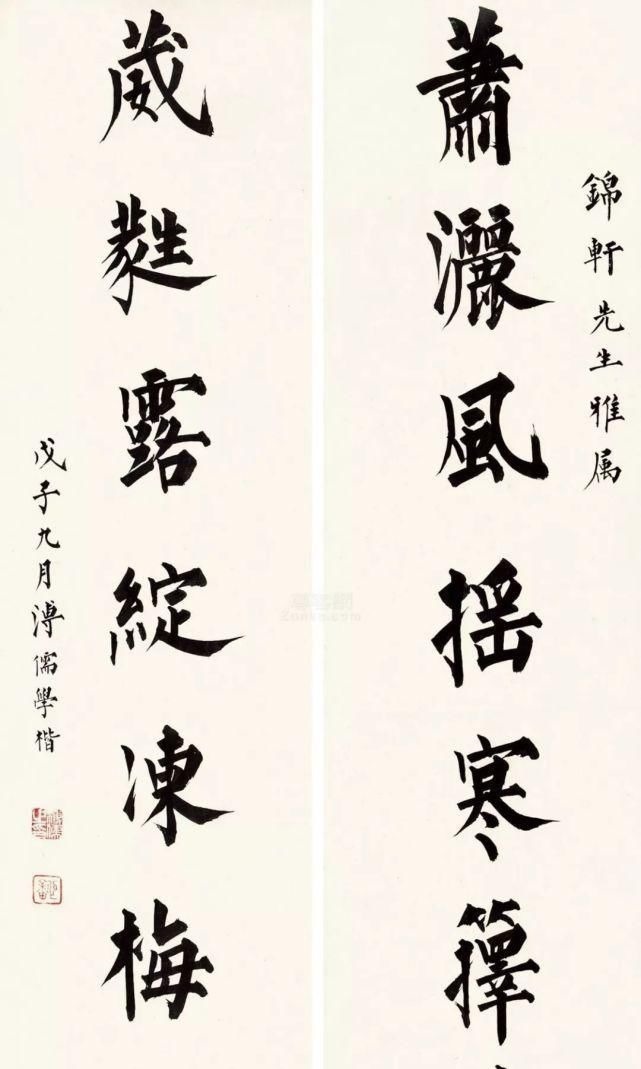 錦軒先生雅属
蕭灑風搖寒籜
葳蕤露綻凍梅
戊子九月溥儒學楷